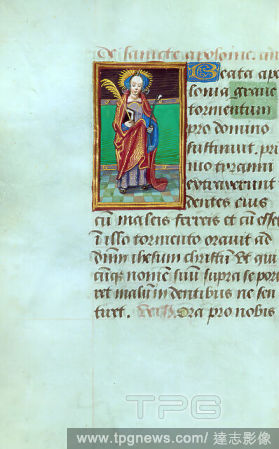 De sancte apolonie. an
Beata apo
lonia graue
tormentum
pro domino
sustinuit. pri
mo tyranni
extraxerunt
dentes eius
cū malleis ferreis et cū esset
ī isto tormento orauit ad
dñm ihesum christū Et qui
cūqꝫ nomē suū supra se por
ret malū in dentibus ne sen
tiret. Ora pro nobis
TPG
www.tpgnews.com/ 達志影像